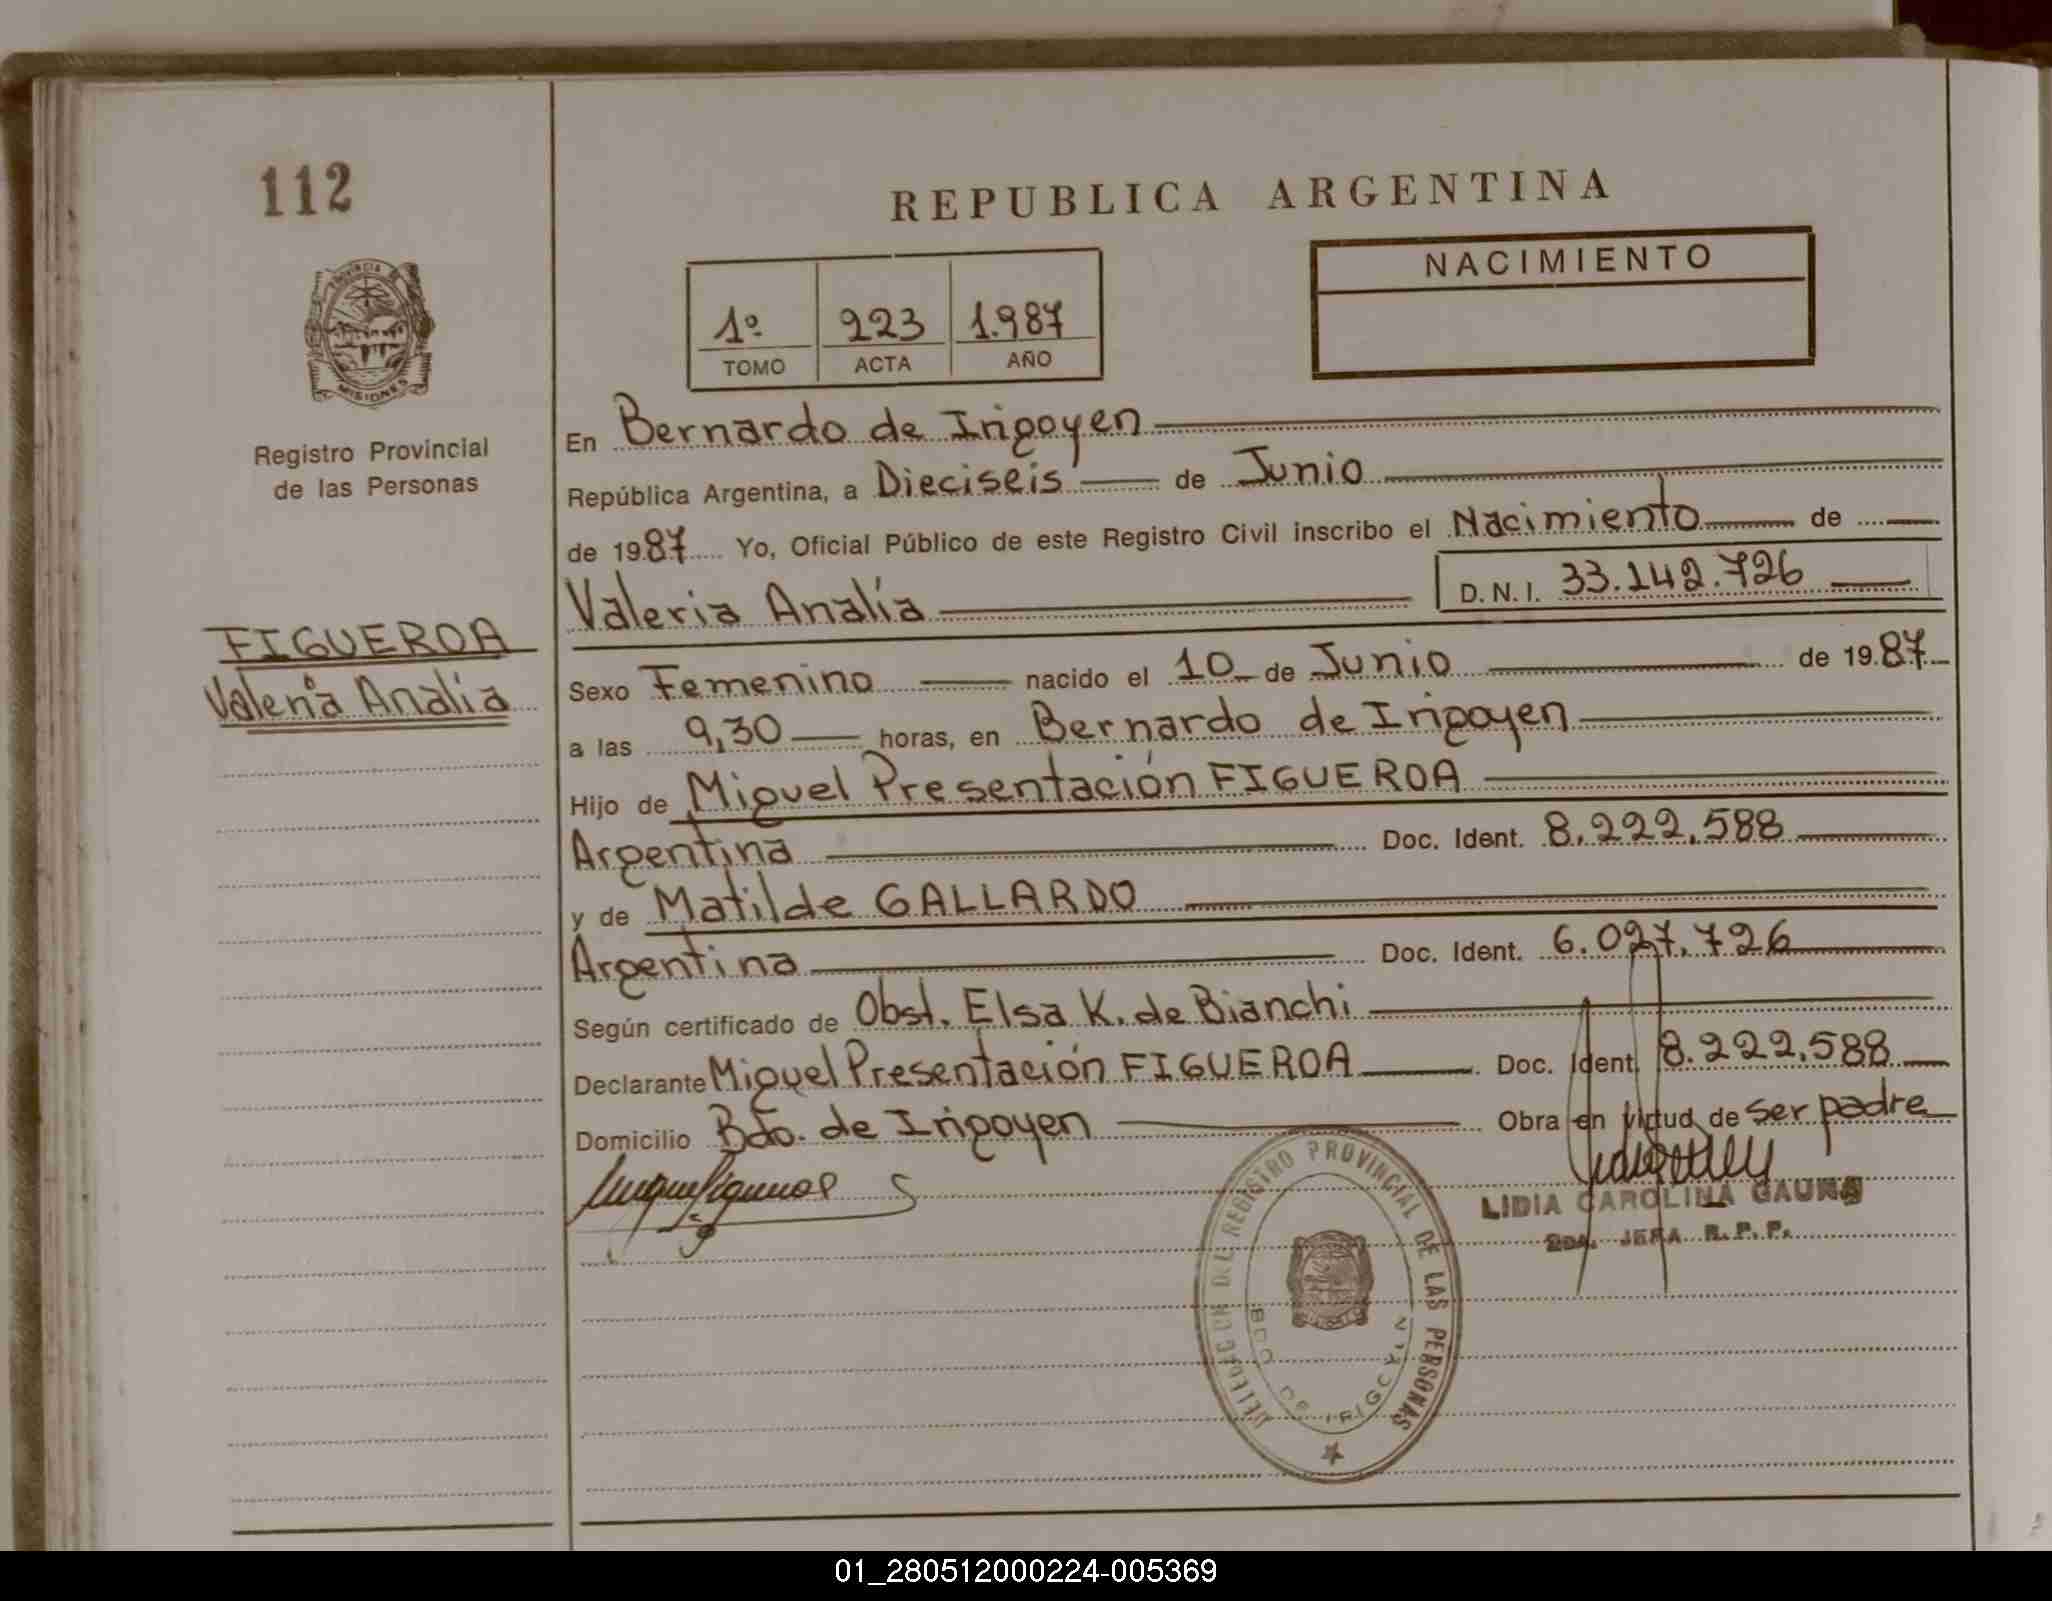 112
REPUBLICA ARGENTINA
PROVINCIA DE
MISIONES
NACIMIENTO
1º 223 1.987
TOMO ACTA AÑO
Registro Provincial
de las Personas
FIGUEROA
Valeria Analía
En Bernardo de Irigoyen
República Argentina, a Dieciseis de Junio
de 1987 Yo, Oficial Público de este Registro Civil inscribo el Nacimiento de
Valeria Analía D.N.I. 33.142.726
Sexo Femenino nacido el 10 de Junio de 1987
a las 9,30 horas, en Bernardo de Irigoyen
Hijo de Miguel Presentación FIGUEROA
Argentina Doc. Ident. 8.222.588
y de Matilde GALLARDO
Argentina Doc. Ident. 6.027.726
Según certificado de Obst. Elsa K. de Bianchi
Declarante Miguel Presentación FIGUEROA Doc. Ident. 8.222.588
Domicilio Bdo. de Irigoyen Obra en virtud de ser padre
LIDIA CAROLINA GAUNA
2da. JEFA R.P.P.
DELEGACION DEL REGISTRO PROVINCIAL DE LAS PERSONAS
BDO DE IRIGOYEN
01_280512000224-005369